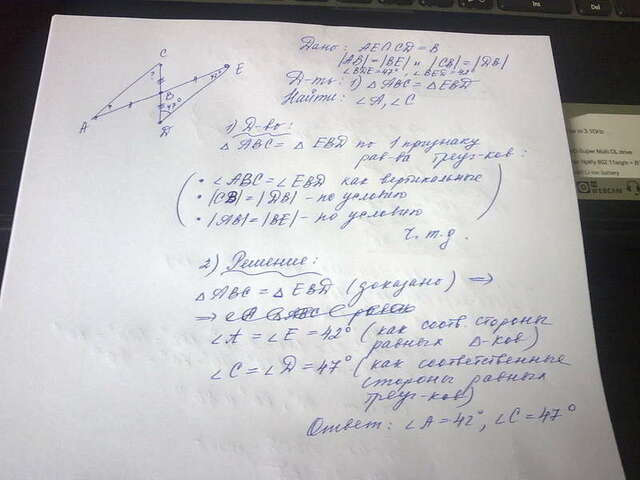 Дано: AE∩CD=B
|AB|=|BE| и |CB|=|DB|
∠BDE=47°, ∠BED=42°
Д-ть: 1) △ABC=△EBD
Найти: ∠A, ∠C
C
E
B
A
D
?
?
42°
47°
1) Д-во:
△ABC=△EBD по 1 признаку
рав-ва треуг-ков:
• ∠ABC=∠EBD как вертикальные
• |CB|=|DB| - по условию
• |AB|=|BE| - по условию
ч.т.д.
2) Решение:
△ABC=△EBD (доказано) =>
=>
∠A=∠E=42° (как соотв. стороны
равных △-ков)
∠C=∠D=47° (как соответственные
стороны равных
треуг-ков)
Ответ: ∠A=42°, ∠C=47°
WEBCAM